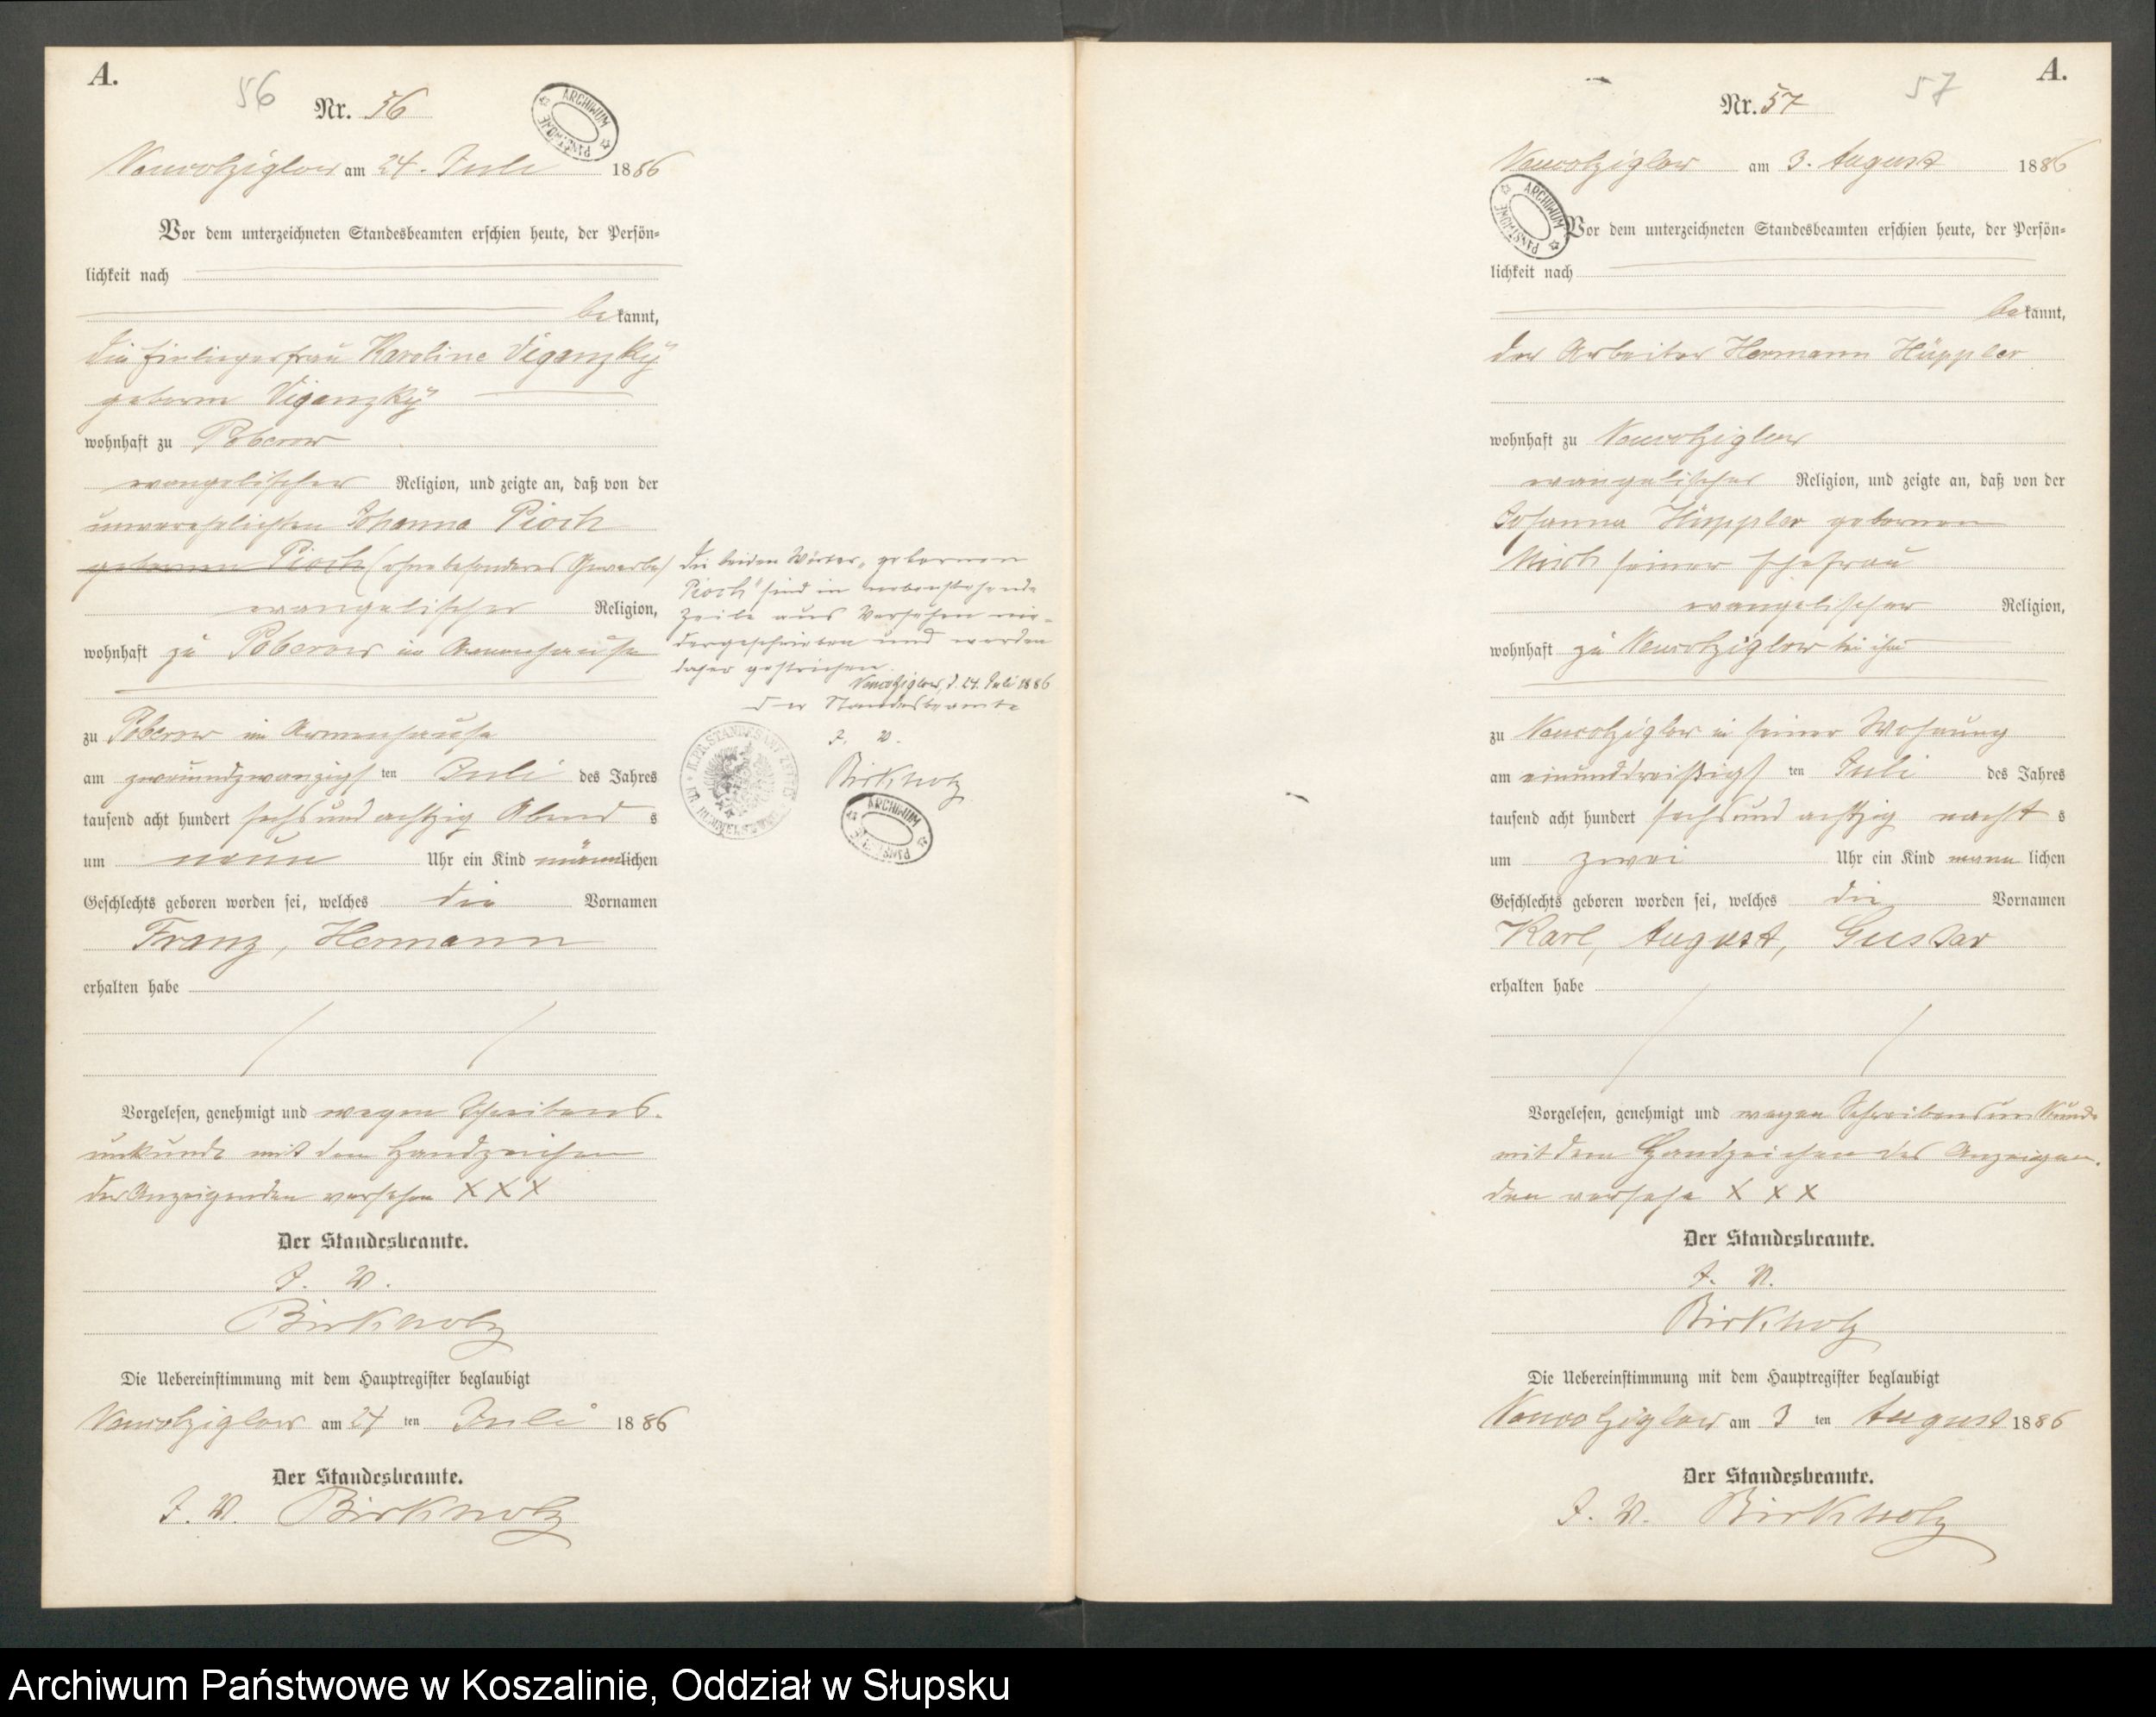 A.
56
Nr. 56
am 24. Juli 1886
Vor dem unterzeichneten Standesbeamten erschien heute, der Persön=
lichkeit nach
bekannt,
die Einliegerfrau Karoline Viganzky
geborne Viganzky
wohnhaft zu Poberow
evangelischer Religion, und zeigte an, daß von der
unverehelichten Johanna Pioch
gebornen Pioch (ohne besonderes Gewerbe)
evangelischer Religion,
wohnhaft zu Poberow im Armenhause
zu Poberow im Armenhause
am zweiundzwanzigsten Juli des Jahres
tausend acht hundert sechsundachtzig Abends
um neun Uhr ein Kind männlichen
Geschlechts geboren worden sei, welches die Vornamen
Franz, Hermann
erhalten habe
Vorgelesen, genehmigt und wegen Schreibens-
unkunde mit dem Handzeichen
der Anzeigenden versehen XXX
Der Standesbeamte.
J. V.
Birkholz
Die Uebereinstimmung mit dem Hauptregister beglaubigt
am 24 ten Juli 1886
Der Standesbeamte.
J. V. Birkholz
Die beiden Wörter „gebornen
Pioch" sind in nebenstehende
Zeile aus Versehen nie-
dergeschrieben und werden
daher gestrichen.
d. 24. Juli 1886
Der Standesbeamte
J. V.
Birkholz
ARCHIWUM PAŃSTWOWE
A.
57
Nr. 57
am 3. August 1886
ARCHIWUM PAŃSTWOWE
Vor dem unterzeichneten Standesbeamten erschien heute, der Persön=
lichkeit nach
bekannt,
der Arbeiter Hermann Hüppler
wohnhaft zu
evangelischer Religion, und zeigte an, daß von der
Johanna Hüppler gebornen
seiner Ehefrau
evangelischer Religion,
wohnhaft zu bei ihm
zu in seiner Wohnung
am einunddreißigsten Juli des Jahres
tausend acht hundert sechsundachtzig nachts
um zwei Uhr ein Kind männlichen
Geschlechts geboren worden sei, welches die Vornamen
Karl, August, Gustav
erhalten habe
Vorgelesen, genehmigt und wegen Schreibensunkunde
mit dem Handzeichen des Anzeigen-
den versehe X X X
Der Standesbeamte.
J. V.
Birkholz
Die Uebereinstimmung mit dem Hauptregister beglaubigt
am 3 ten August 1886
Der Standesbeamte.
J. V. Birkholz
Archiwum Państwowe w Koszalinie, Oddział w Słupsku